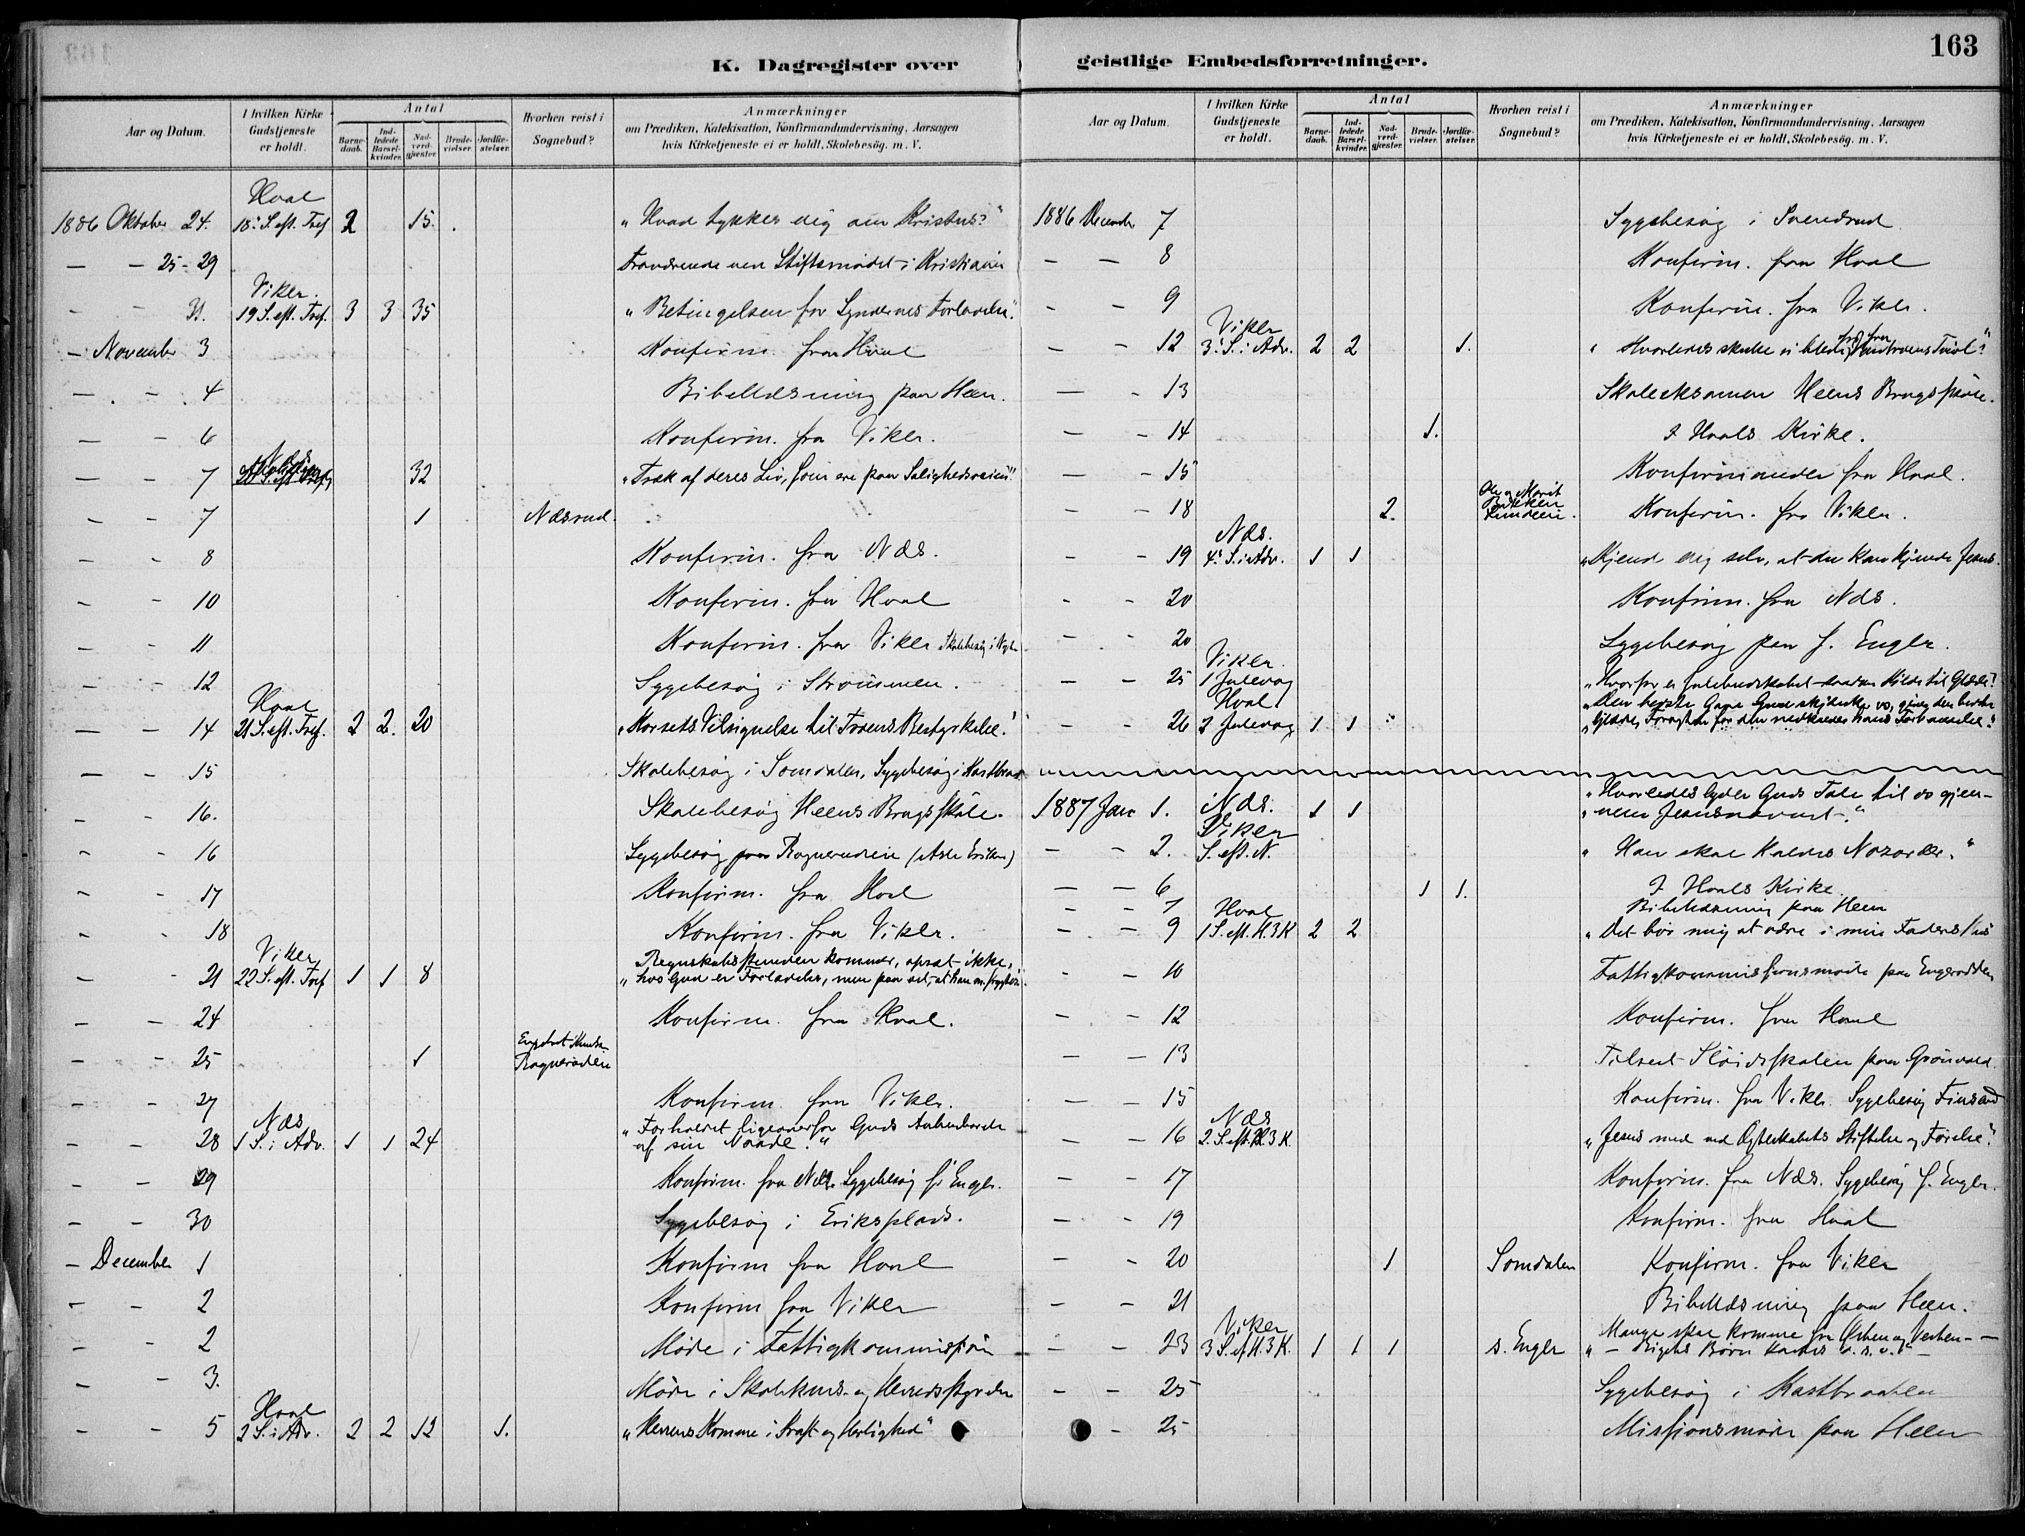 163
K. Dagregister over
geistlige Embedsforretninger.
Aar og Datum.
I hvilken Kirke Gudstjeneste er holdt.
Antal
Barnedaab.
Indledede Barselkvinder.
Nadverdgjæster.
Brudevielser.
Jordfæstelser.
Hvorhen reist i Sognebud?
Anmærkninger
om Prædiken, Katekisation, Konfirmandundervisning, Aarsagen
hvis Kirketjeneste ei er holdt, Skolebesøg. m. V.
Hval
1886 Oktober 24. 18. S. eft. Tref 2 15. "Hvad tykkes dig om Kristus?"
— — 25-29 Stiftsmødet i Kristiania
Viker
— — 31. 19 S. eft. Tref. 3 3 35 "Betingelsen for Syndernes Forladelse."
— November 3 Konfirm. fra Hval
— — 4 Bibellæsning paa Heen.
— — 6 Konfirm. fra Viker.
— — 7 32 "Træk af deres Liv, som ere paa Salighedsveien"
— — 7 1 Næsrud.
— — 8 Konfirm. fra Næs.
— — 10 Konfirm. fra Hval
— — 11 Konfirm. fra Viker Skolebesøg i
— — 12 Sygebesøg i Strømmen.
Hval
— — 14 21 S. eft. Tref. 2 2. 20 "Korsets Velsignelse til Troens Bestyrkelse."
— — 15 Skolebesøg i Somdalen, Sygebesøg i Kastbraat
— — 16. Skolebesøg Heens Brugsskole.
— — 16 Sygebesøg paa
— — 17 Konfirm. fra Hval
— — 18 Konfirm. fra Viker.
Viker Regnskabsstunden kommer, opsæt ikke,
— — 21 22 S. eft. Tref 1 1 8 "hos Gud er Forladelse, men paa det, at han
— — 24 Konfirm. fra Hval.
— — 25 1
— — 27 Konfirm. fra Viker.
Næs "Forholdet ligeoverfor Guds Anbudorde
— — 28 1 S. i Adv. 1 1 24 af sin Naade."
— — 29 Konfirm. fra Næs. Sygebesøg Engler.
— — 30 Sygebesøg i Eriksplads.
— December 1 Konfirm fra Hval
— — 2 Konfirm fra Viker
— — 2 Møde i Fattigkommission
— — 3. Møde i Skolekms. og Herredsstyrelse
Hval
— — 5 2 S. i Adv. 2 2 12 1. "Herrens Komme i Kraft og Herlighed"
Aar og Datum.
I hvilken Kirke Gudstjeneste er holdt.
Antal
Barnedaab.
Indledede Barselkvinder.
Nadverdgjæster.
Brudevielser.
Jordfæstelser.
Hvorhen reist i Sognebud?
Anmærkninger
om Prædiken, Katekisation, Konfirmandundervisning, Aarsagen
hvis Kirketjeneste ei er holdt, Skolebesøg. m. V.
1886 December 7 Sygebesøg i Svendsrud
— — 8 Konfirm. fra Hval
— — 9 Konfirm. fra Viker.
Viker
— — 12 3. S. i Adv. 2 2 1. "Hvorledes skulle vi blive fri fra Vantroens Tvivl?"
— — 13 Skoleeksamen Heens Brugsskole.
— — 14 1. I Hvals Kirke.
— — 15 Konfirmander fra Hval.
— — 18 2. Konfirm. fra Viker.
Næs.
— — 19 4. S. i Adv. 1 1 "Kjend dig selv, at du kan kjende Jesus.
— — 20 Konfirm. fra Næs.
— — 20 Sygebesøg paa S. Engler.
Viker
— — 25 1 Juledag "Hvorfor er Julebudskabet saadan Kilde til Glæde?"
Hval "Den bedste Gave Gud skjænker os, giver den bedste
— — 26 2 Juledag 1 1 Glæde,
1887 Jan 1. Næs. 1 1 "Hvorledes lyder Guds Tale til os gjen-
nem Jesusnavnet."
Viker
— — 2. S. eft. N. "Han skal kaldes Nazaræer."
— — 6 1 1. I Hvals Kirke
— — 7 Bibellæsning paa Heen
Hval
— — 9 1 S. eft. H. 3 K 2 2 "Det bør mig at være i min Faders Hus"
— — 10 Fattigkommissionsmøde paa
— — 12 Konfirm. fra Hval
— — 13 Tilseet Sløidskolen paa Grønvold
— — 15 Konfirm. fra Viker. Sygebesøg Finsand
Næs
— — 16 2. S. eft. H. 3 K. "Jesus med ved Ægteskabets Stiftelse og Førelse."
— — 17 Konfirm. fra Næs. Sygebesøg S. Engler.
— — 19 Konfirm. fra Hval
— — 20 1 Somdalen Konfirm. fra Viker
— — 21 Bibellæsning paa Heen.
Viker Mange skal komme fra Østen og Vesten —
— — 23 3 S. ef H. 3 K. 1 1 1 S. Engler " — Rigets Børn kastes o. s. v."
— — 25 Sygebesøg i Kastbraaten
— — 25 Missionsmøde paa Heen